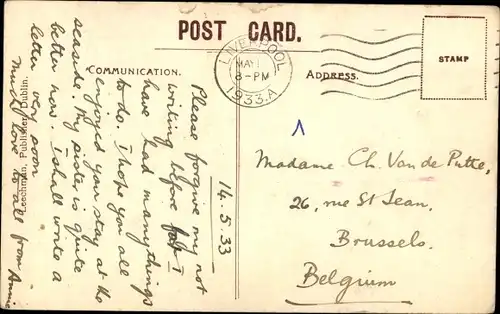 POST CARD.
LIVERPOOL
MAY
8-PM
1933.A
STAMP
COMMUNICATION.
ADDRESS.
14.5.33
Please forgive my not
writing before I
have had many things
to do. I hope you all
enjoyed your stay at the
seaside. My sister is quite
better now. I shall write a
letter very soon
Much love to all from Annie
Leechman, Publisher, Dublin.
Madame Ch. Van de Putte,
26, rue St Jean,
Brussels.
Belgium